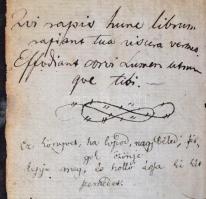 Qui rapis hunc librum
rapiant tua viscera vermes
Effodiant corvi lumen utrum
que tibi. —
Ez könyvet, ha lopod, nagy béled,
meg, és holló ássa ki két